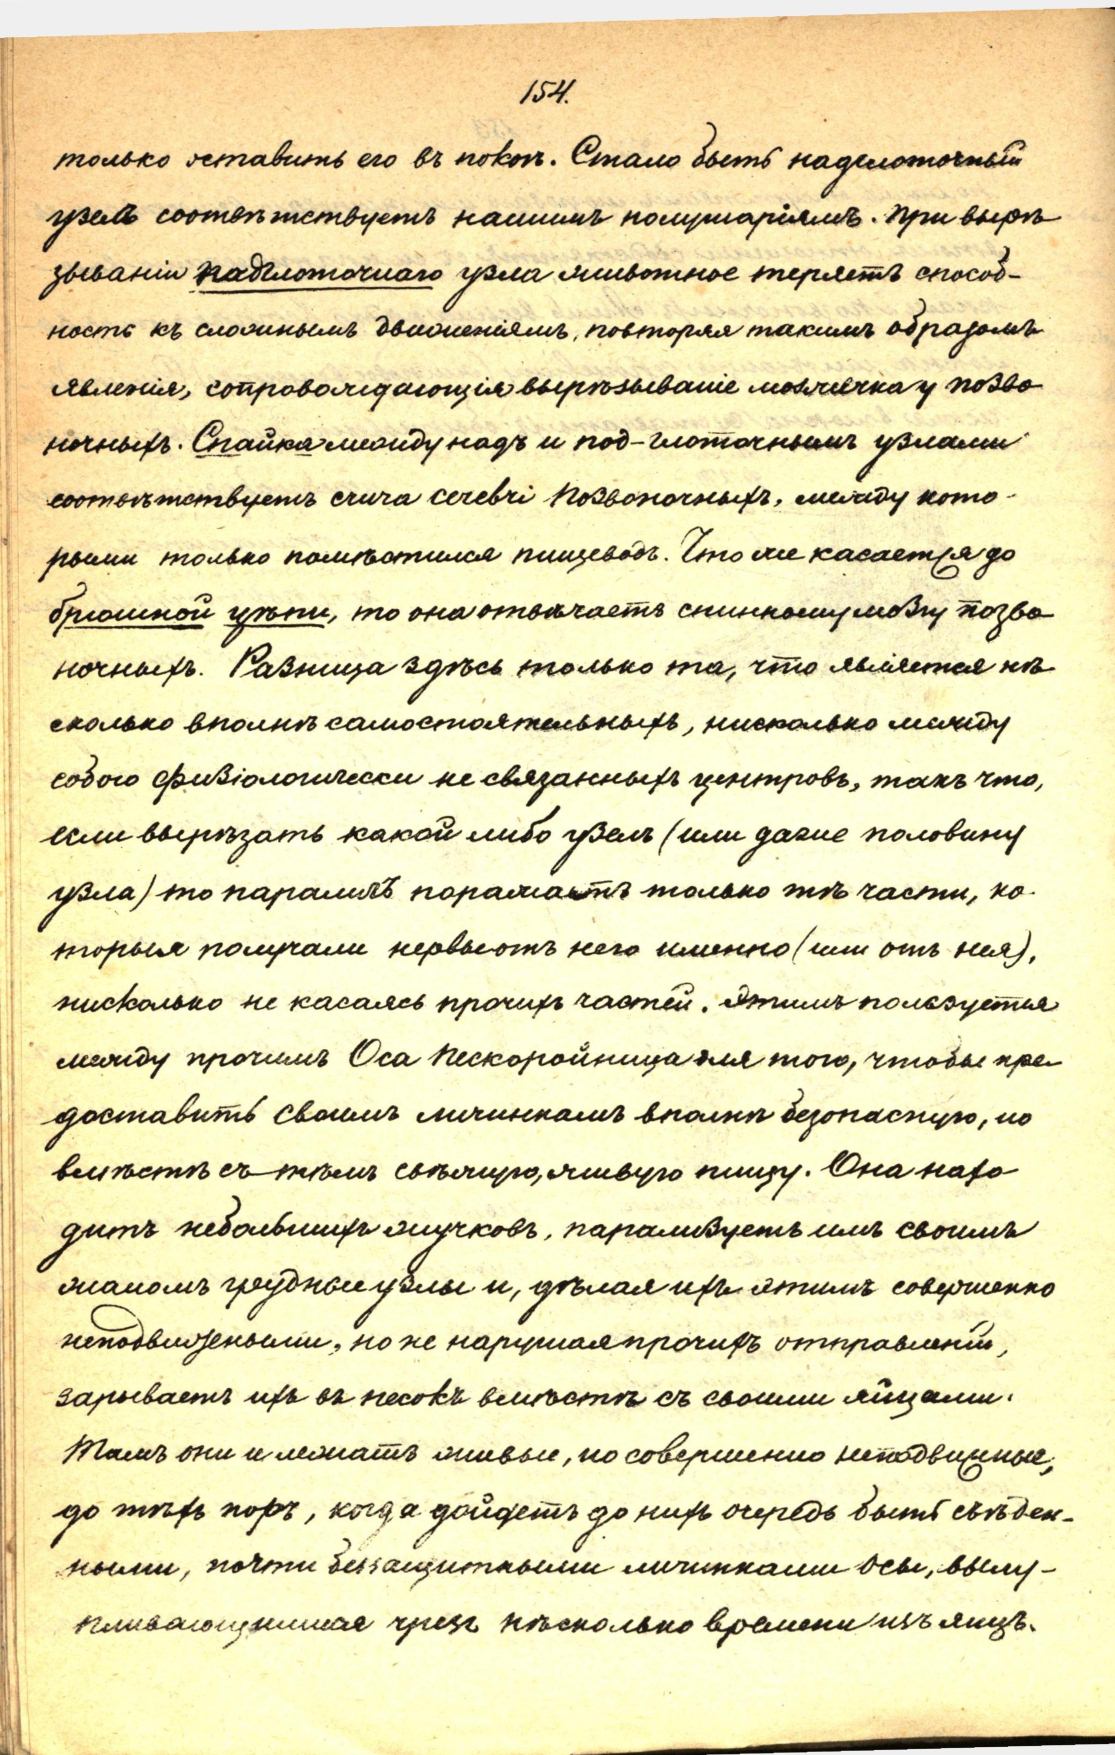 154.
только оставить его въ покоѣ. Стало быть надглоточный
узелъ соотвѣтствуетъ нашимъ полушаріямъ. При вырѣ
зываніи подглоточнаго узла животное теряетъ способ-
ность къ сложнымъ движеніямъ, повторяя такимъ образомъ
явленія, сопровождающія вырѣзываніе мозжечка у позво
ночныхъ. Спайка между надъ и под-глоточнымъ узлами
соотвѣтствуетъ crura cerebri позвоночныхъ, между кото-
рыми только помѣстился пищеводъ. Что же касается до
брюшной цѣпи, то она отвѣчаетъ спинному мозгу позво
ночныхъ. Разница здѣсь только та, что является нѣ
сколько вполнѣ самостоятельныхъ, нисколько между
собою физіологически не связанныхъ центровъ, такъ что,
если вырѣзать какой либо узелъ (или даже половину
узла) то параличъ поражаетъ только тѣ части, ко-
торыя получали нервы отъ него именно (или отъ нея),
нисколько не касаясь прочихъ частей. Этимъ пользуется
между прочимъ Оса пескоройница для того, чтобы пре
доставить своимъ личинкамъ вполнѣ безопасную, но
вмѣстѣ съ тѣмъ свѣжую, живую пищу. Она нахо
дитъ небольшихъ жучковъ, парализуетъ имъ своимъ
жаломъ грудные узлы и, дѣлая ихъ этимъ совершенно
неподвижными, но не нарушая прочихъ отправленій,
зарываетъ ихъ въ песокъ вмѣстѣ съ своими яйцами.
Тамъ они и лежатъ живые, но совершенно неподвижные,
до тѣхъ поръ, когда дойдетъ до нихъ очередь быть съѣден-
ными, почти беззащитными личинками осы, вылу-
пливающимися чрезъ нѣсколько времени изъ яицъ.